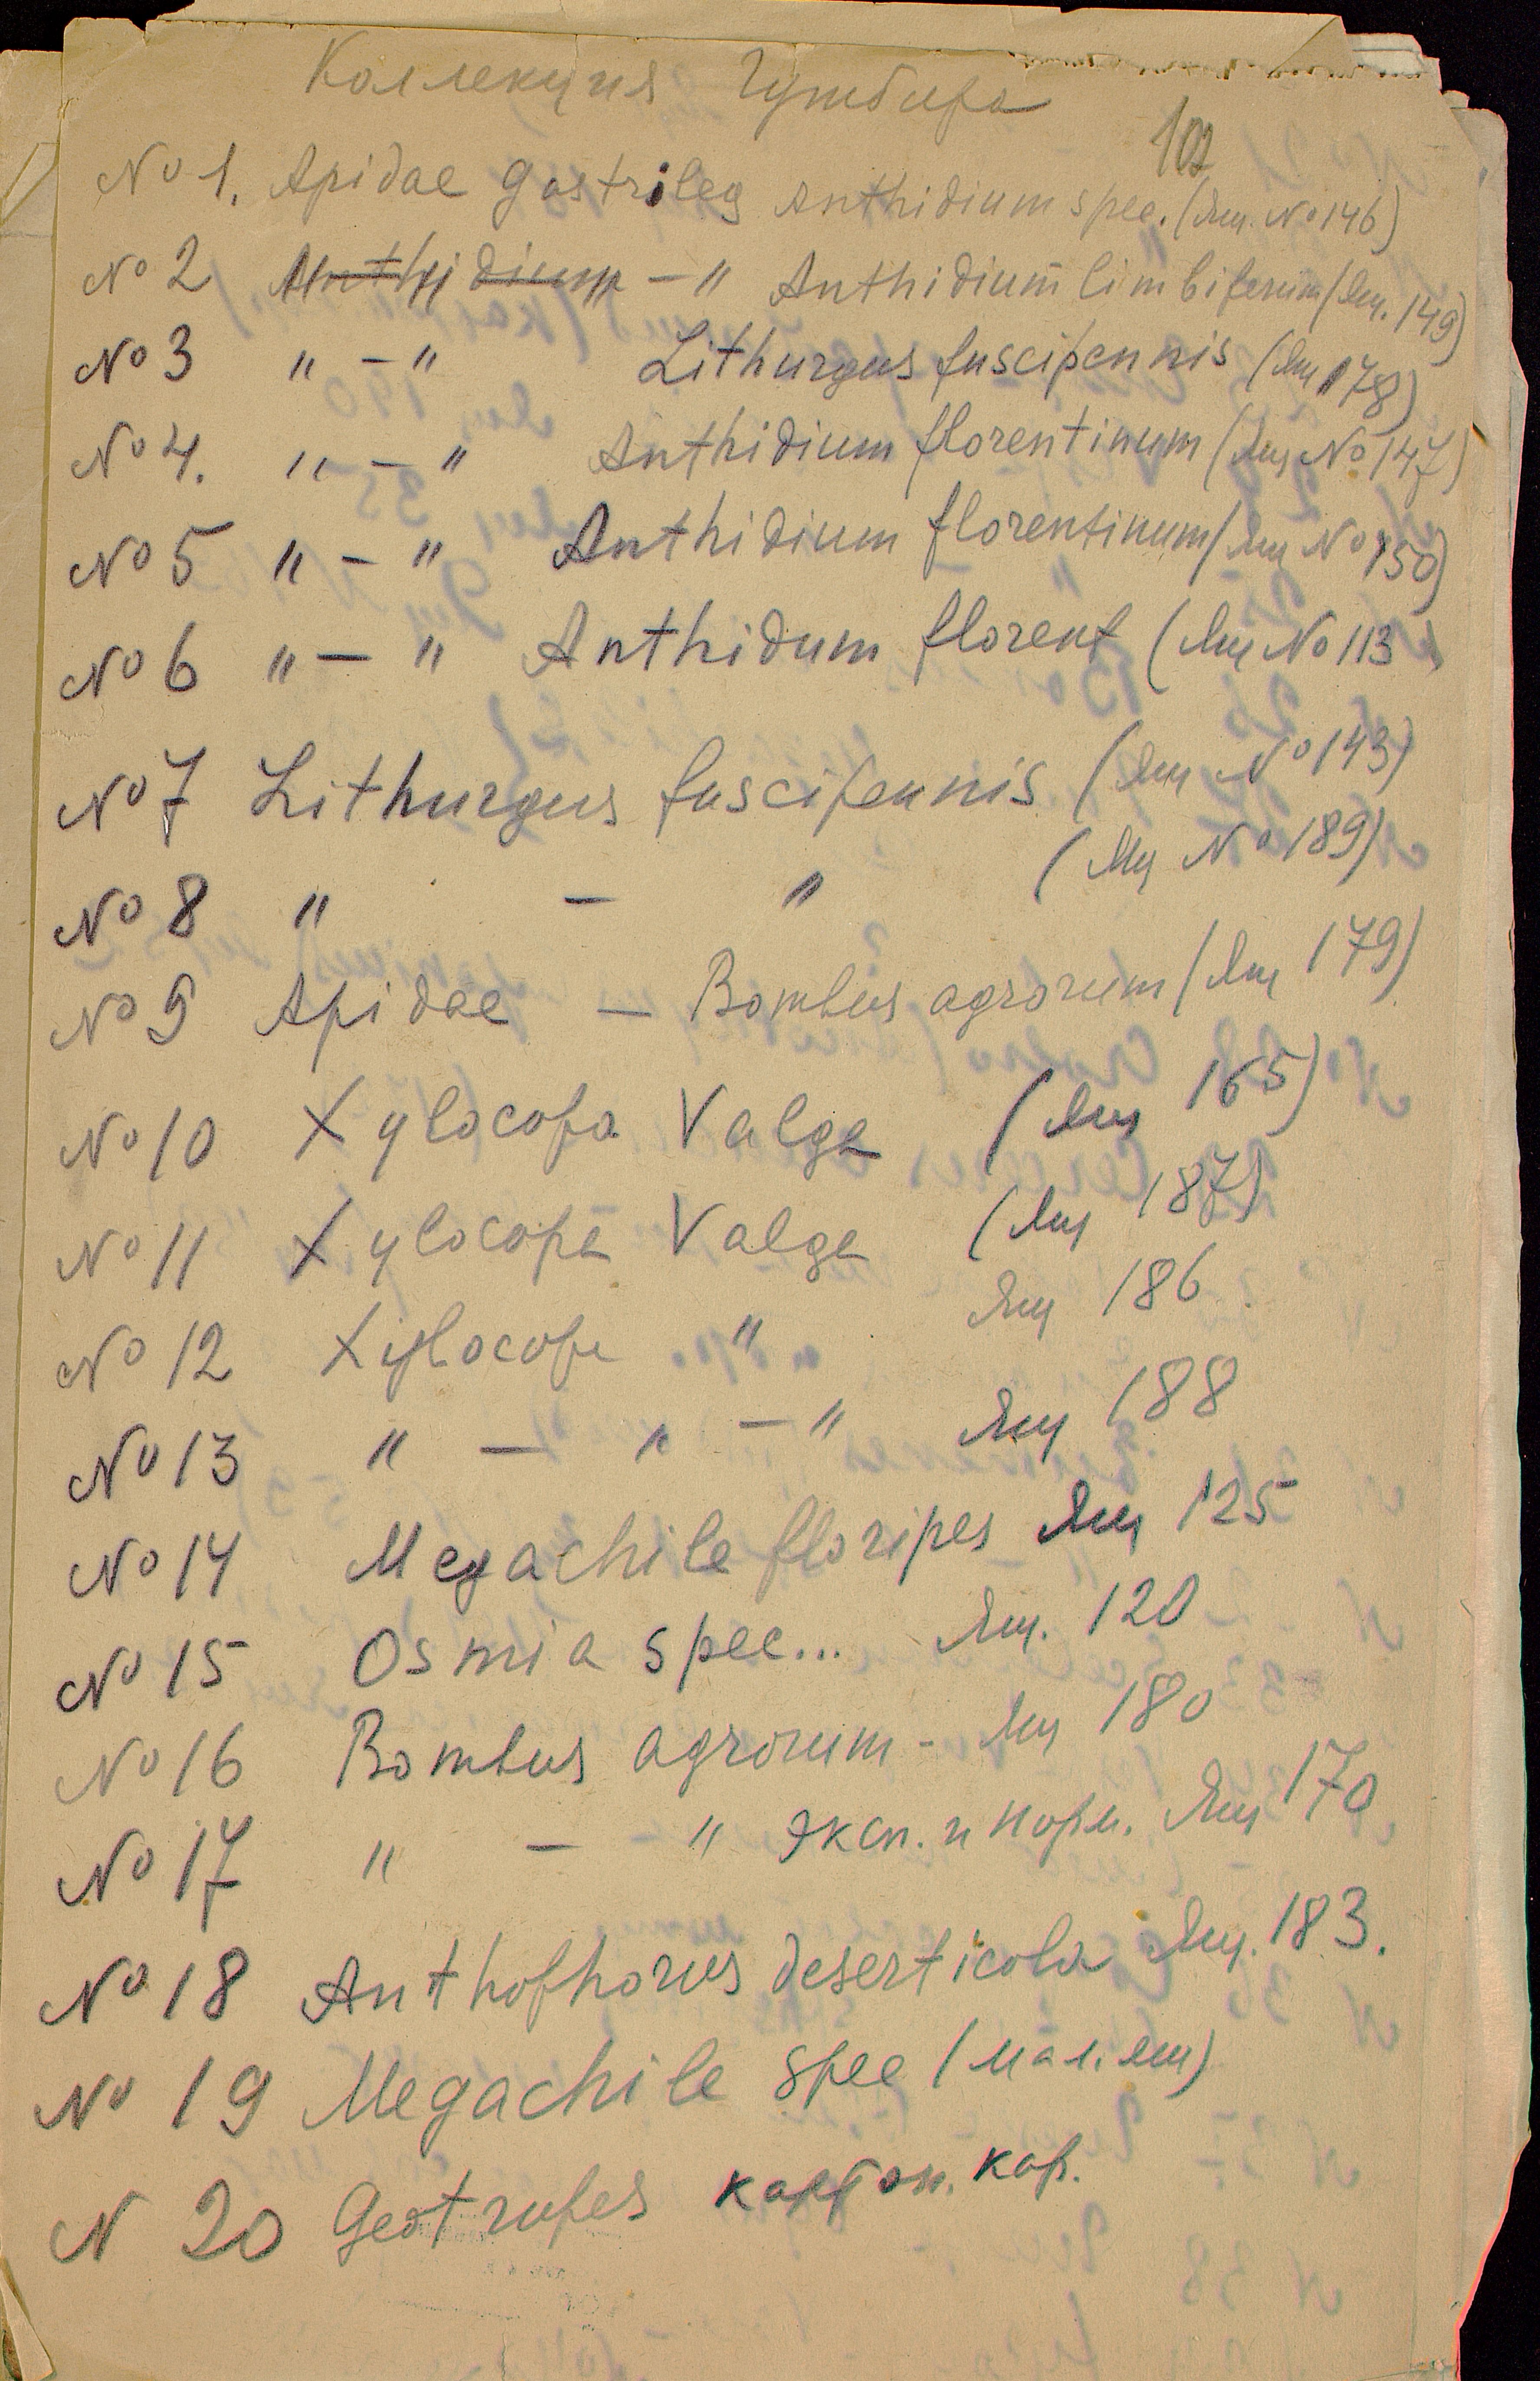 Коллекция Гутбира
102
№ 1. Apidae gastrileg Anthidium spec. (Ящ. № 146)
№ 2 Anthidium — " Anthidium limbiferum (Ящ. 149)
№ 3 " — " Lithurgus fuscipennis (Ящ 178)
№ 4. " — " Anthidium florentinum (Ящ № 147)
№ 5 " — " Anthidium florentinum (Ящ № 150)
№ 6 " — " Anthidum florent (Ящ № 113)
№ 7 Lithurgus fuscipennis (Ящ № 143)
№ 8 " — " (Ящ № 189)
№ 9 Apidae — Bombus agrorum (Ящ 179)
№ 10 Xylocopa Valga (Ящ 165)
№ 11 Xylocopa Valga (Ящ 187)
№ 12 Xylocopa " Ящ 186.
№ 13 " — " — " Ящ 188
№ 14 Megachile floripes Ящ 125
№ 15 Osmia spec... Ящ. 120
№ 16 Bombus agrorum - Ящ 180
№ 17 " — " эксп. и норм. Ящ 170
№ 18 Anthophorus deserticola Ящ. 183.
№ 19 Megachile spec (мал. ящ)
N 20 Geotrupes картон. кор.